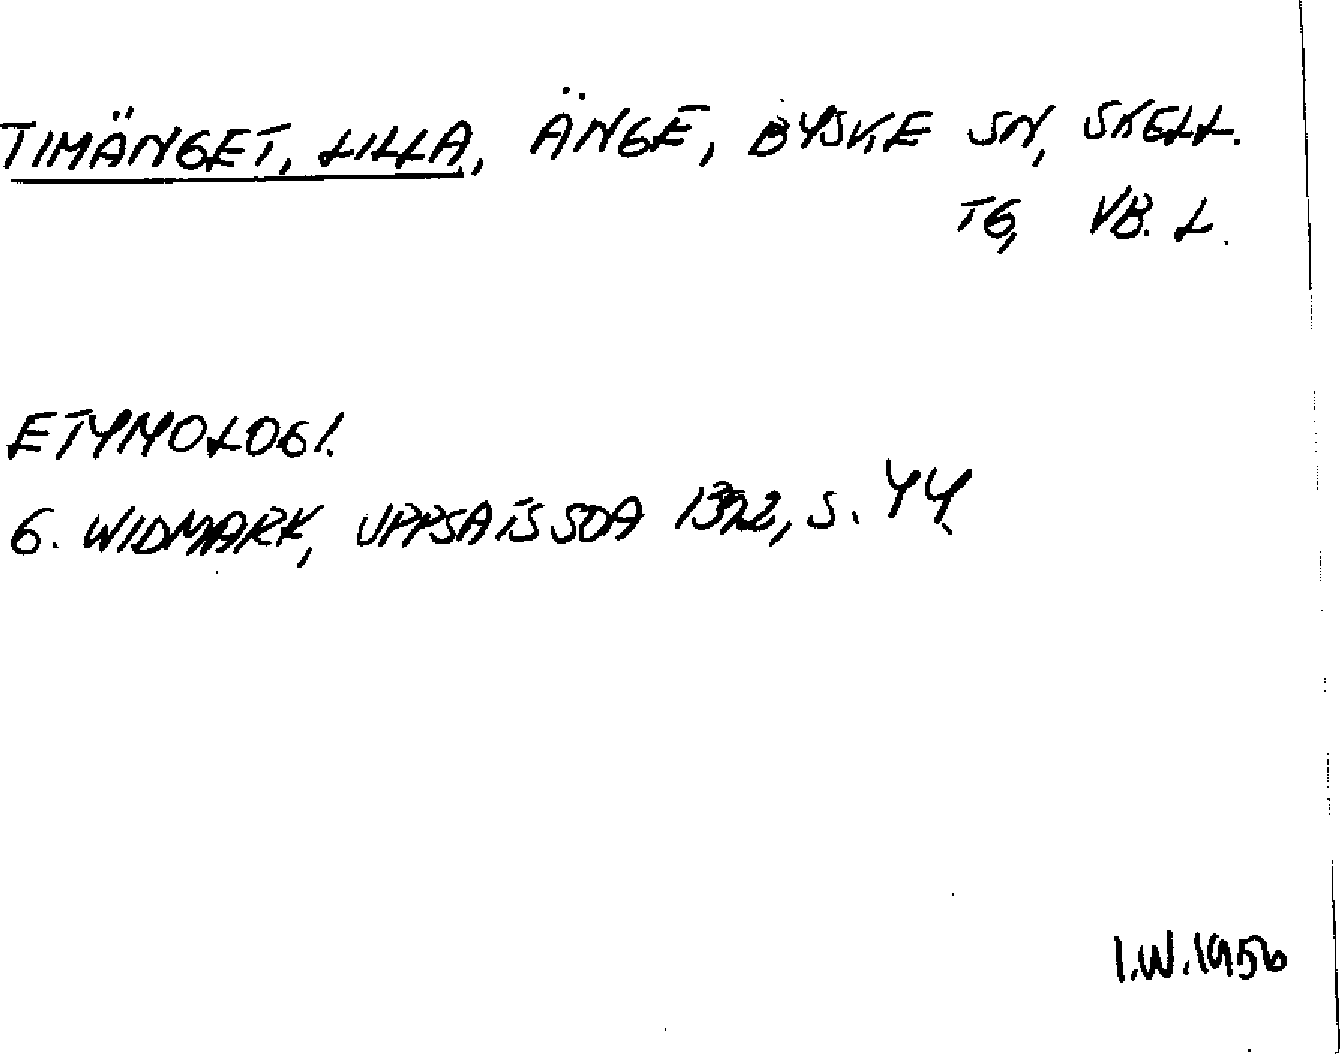 TIMÄNGET, LILLA, ÄNGE, BYSKE SN, SKELL.
TG, VB. L.
ETYMOLOGI.
G. WIDMARK, s. 44
I.W. 1956